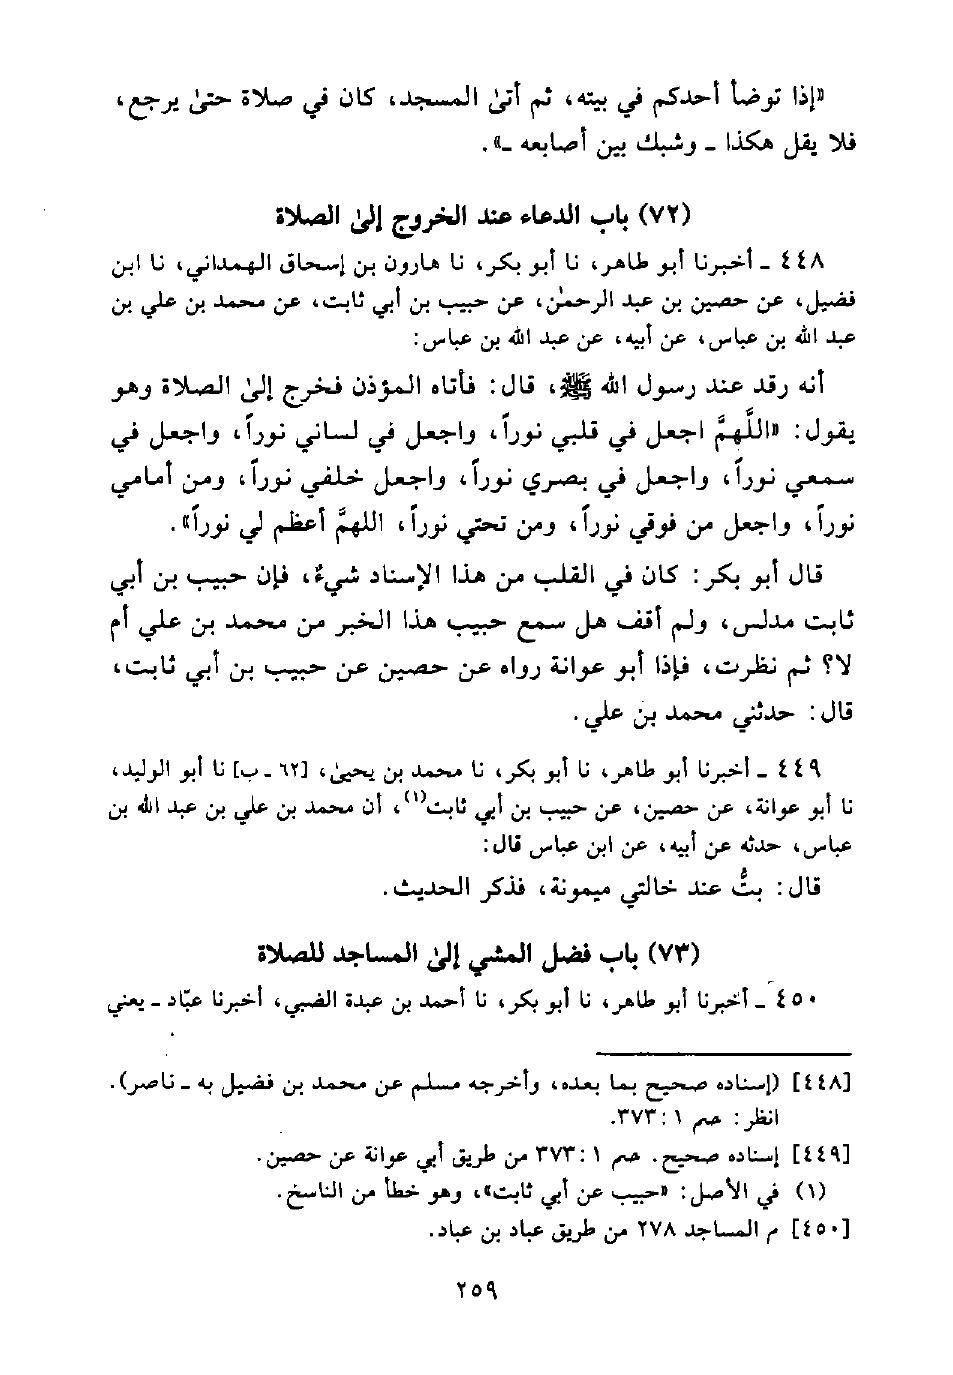 «إذا توضأ أحدكم في بيته، ثم أتىٰ المسجد، كان في صلاة حتىٰ يرجع،
فلا يقل هكذا ـ وشبك بين أصابعه ـ».
(٧٢) باب الدعاء عند الخروج إلىٰ الصلاة
٤٤٨ ـ أخبرنا أبو طاهر، نا أبو بكر، نا هارون بن إسحاق الهمداني، نا ابن
فضيل، عن حصين بن عبد الرحمٰن، عن حبيب بن أبي ثابت، عن محمد بن علي بن
عبد الله بن عباس، عن أبيه، عن عبد الله بن عباس:
أنه رقد عند رسول الله ﷺ، قال: فأتاه المؤذن فخرج إلىٰ الصلاة وهو
يقول: «اللَّهمَّ اجعل في قلبي نوراً، واجعل في لساني نوراً، واجعل في
سمعي نوراً، واجعل في بصري نوراً، واجعل خلفي نوراً، ومن أمامي
نوراً، واجعل من فوقي نوراً، ومن تحتي نوراً، اللهمَّ أعظم لي نوراً».
قال أبو بكر: كان في القلب من هذا الإسناد شيءٌ، فإن حبيب بن أبي
ثابت مدلس، ولم أقف هل سمع حبيب هذا الخبر من محمد بن علي أم
لا؟ ثم نظرت، فإذا أبو عوانة رواه عن حصين عن حبيب بن أبي ثابت،
قال: حدثني محمد بن علي.
٤٤٩ ـ أخبرنا أبو طاهر، نا أبو بكر، نا محمد بن يحيىٰ، [٦٢ ـ ب] نا أبو الوليد،
نا أبو عوانة، عن حصين، عن حبيب بن أبي ثابت(١)، أن محمد بن علي بن عبد الله بن
عباس، حدثه عن أبيه، عن ابن عباس قال:
قال: بتُّ عند خالتي ميمونة، فذكر الحديث.
(٧٣) باب فضل المشي إلىٰ المساجد للصلاة
٤٥٠ ـ أخبرنا أبو طاهر، نا أبو بكر، نا أحمد بن عبدة الضبي، أخبرنا عبّاد ـ يعني
[٤٤٨] (إسناده صحيح بما بعده، وأخرجه مسلم عن محمد بن فضيل به ـ ناصر).
انظر: حم ١ :٣٧٣.
[٤٤٩] إسناده صحيح. حم ١ :٣٧٣ من طريق أبي عوانة عن حصين.
(١) في الأصل: «حبيب عن أبي ثابت»، وهو خطأ من الناسخ.
[٤٥٠] م المساجد ٢٧٨ من طريق عباد بن عباد.
٢٥٩